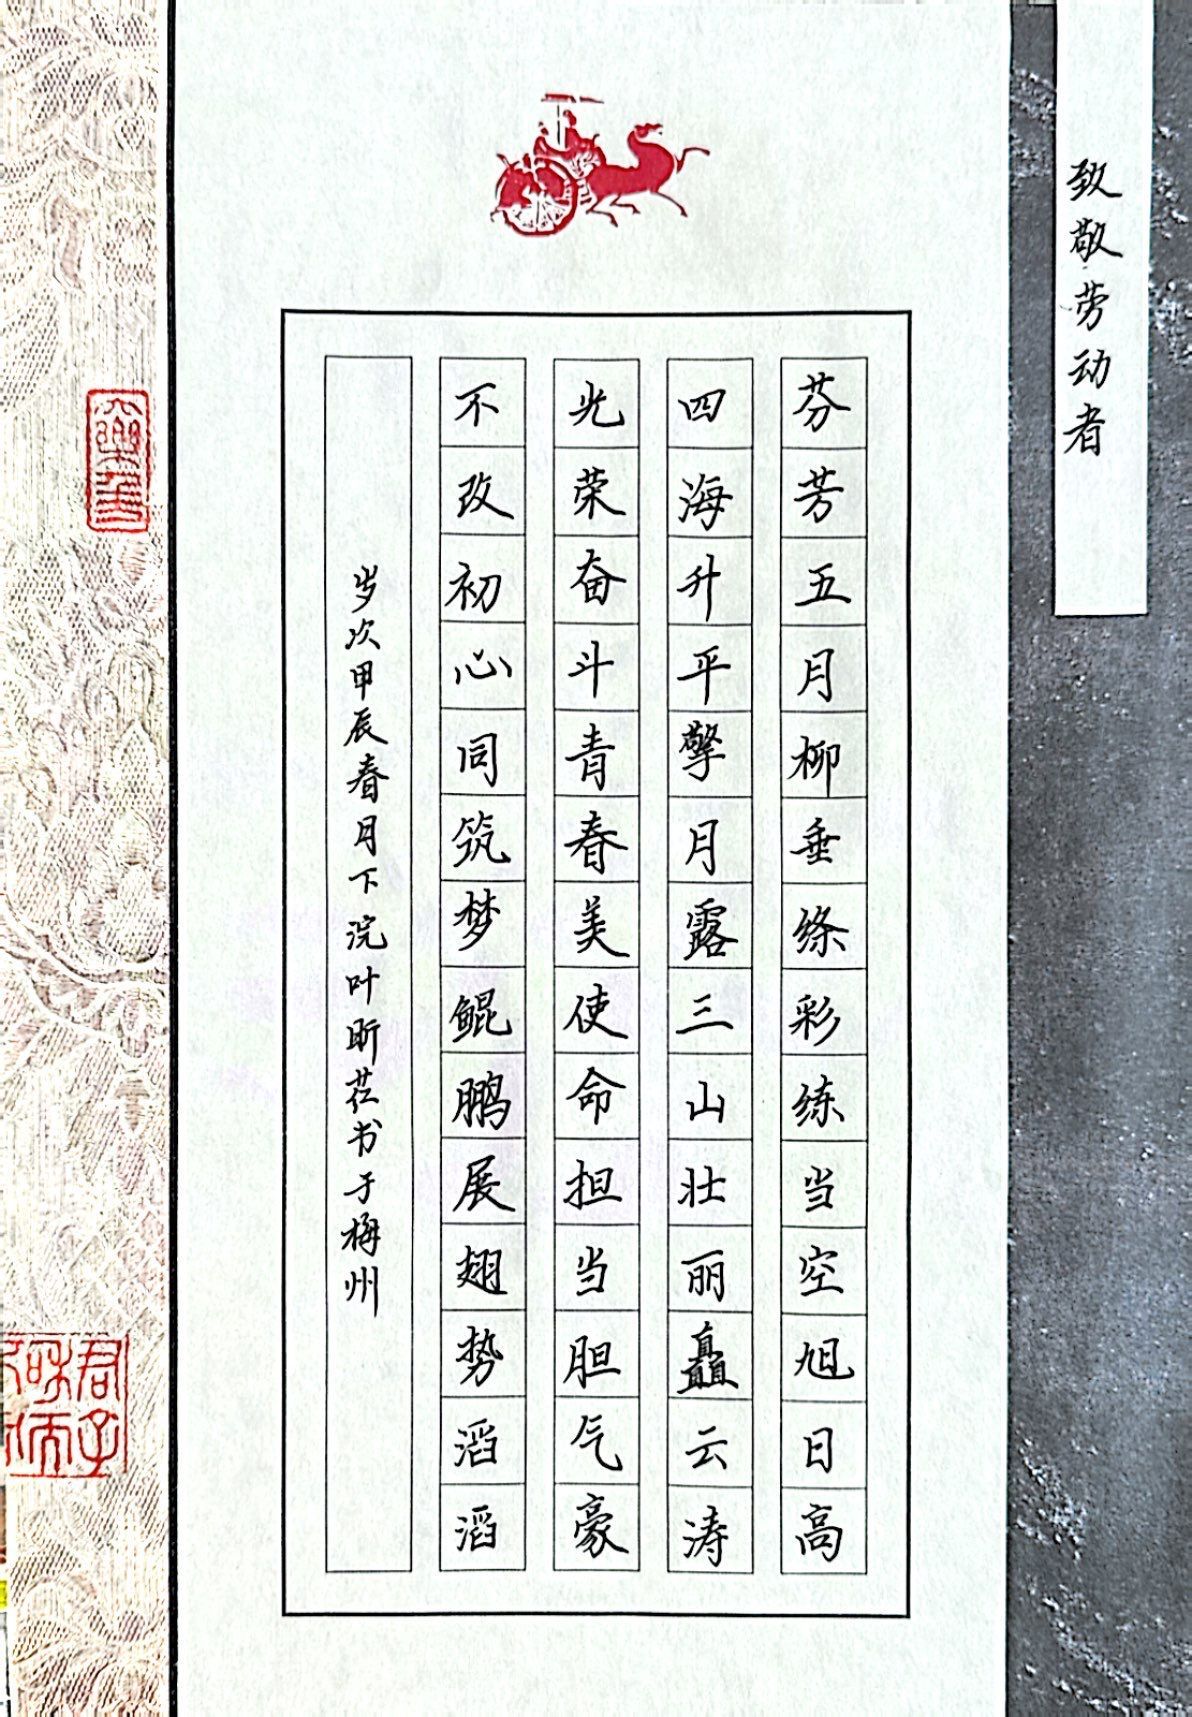 致敬劳动者
芬芳五月柳垂绦彩练当空旭日高
四海升平擎月露三山壮丽矗云涛
光荣奋斗青春美使命担当胆气豪
不改初心同筑梦鲲鹏展翅势滔滔
岁次甲辰春月下浣叶昕莊书于梅州
君子